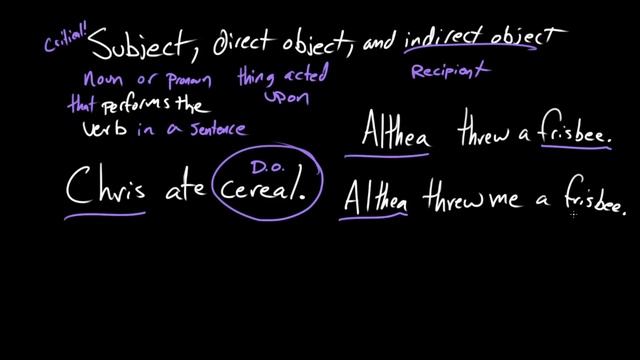 Critical!
Subject, direct object, and indirect object
Noun or Pronoun
that performs the
verb in a sentence
thing acted
upon
Recipient
Althea threw a frisbee.
D.O.
Chris ate cereal.
Althea threw me a frisbee.